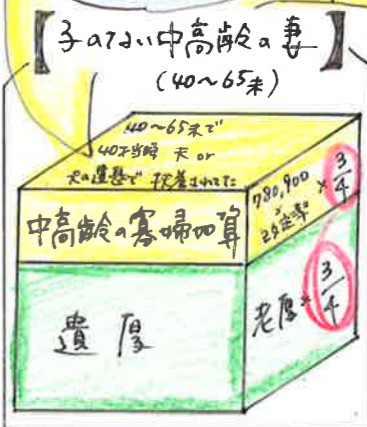 【子のない中高齢の妻】
(40~65未)
40~65未で
40才当時 夫 or
夫の遺族で 扶養されてた
中高齢の寡婦加算
780,900 × 3/4
×
改定率
遺厚
老厚 × 3/4